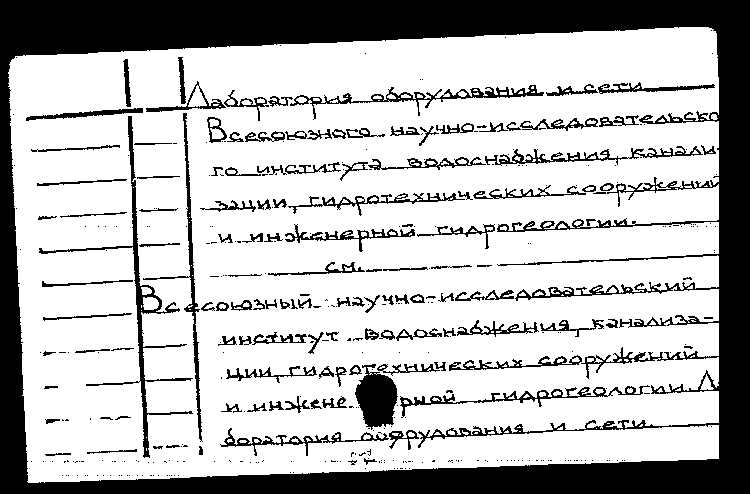 Лаборатория оборудования и сети
Всесоюзного научно-исследовательско
го института водоснабжения, канали-
зации, гидротехнических сооружений
и инженерной гидрогеологии.
см.
Всесоюзный научно-исследовательский
институт водоснабжения, канализа-
ции, гидротехнических сооружений
и инженерной гидрогеологии. Ла
боратория оборудования и сети.